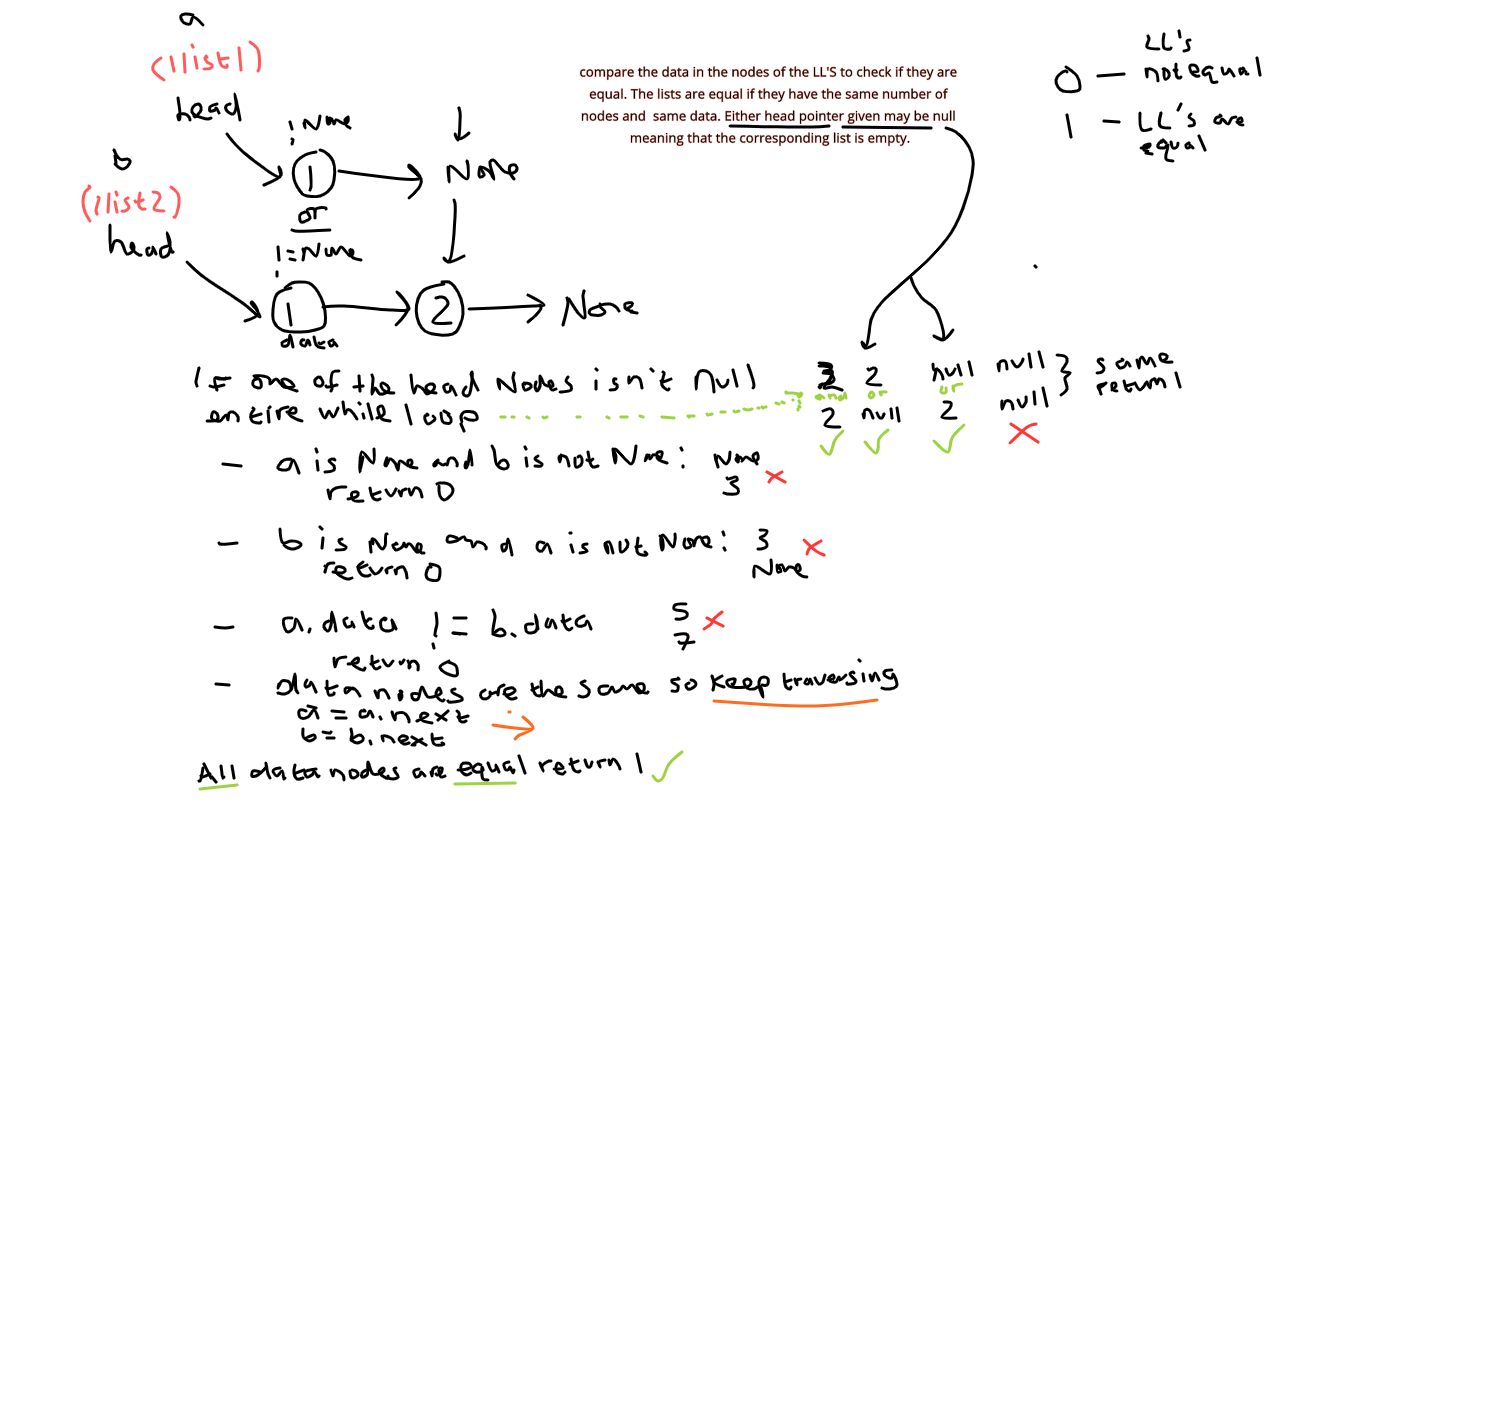 a
(llist1)
head
! None
1
None
or
b
(llist2)
head
!=None
1
data
2
None
compare the data in the nodes of the LL'S to check if they are
equal. The lists are equal if they have the same number of
nodes and same data. Either head pointer given may be null
meaning that the corresponding list is empty.
LL's
0 — not equal
1 — LL's are
equal
If one of the head Nodes isn't Null
entire while loop
2 null null
and or or
2 null 2 null
same
return 1
- a is None and b is not None: None
return 0 3
- b is None and a is not None: 3
return 0 None
- a.data != b.data 5
7
return 0
- data nodes are the same so keep traversing
a = a.next
b = b.next
All data nodes are equal return 1